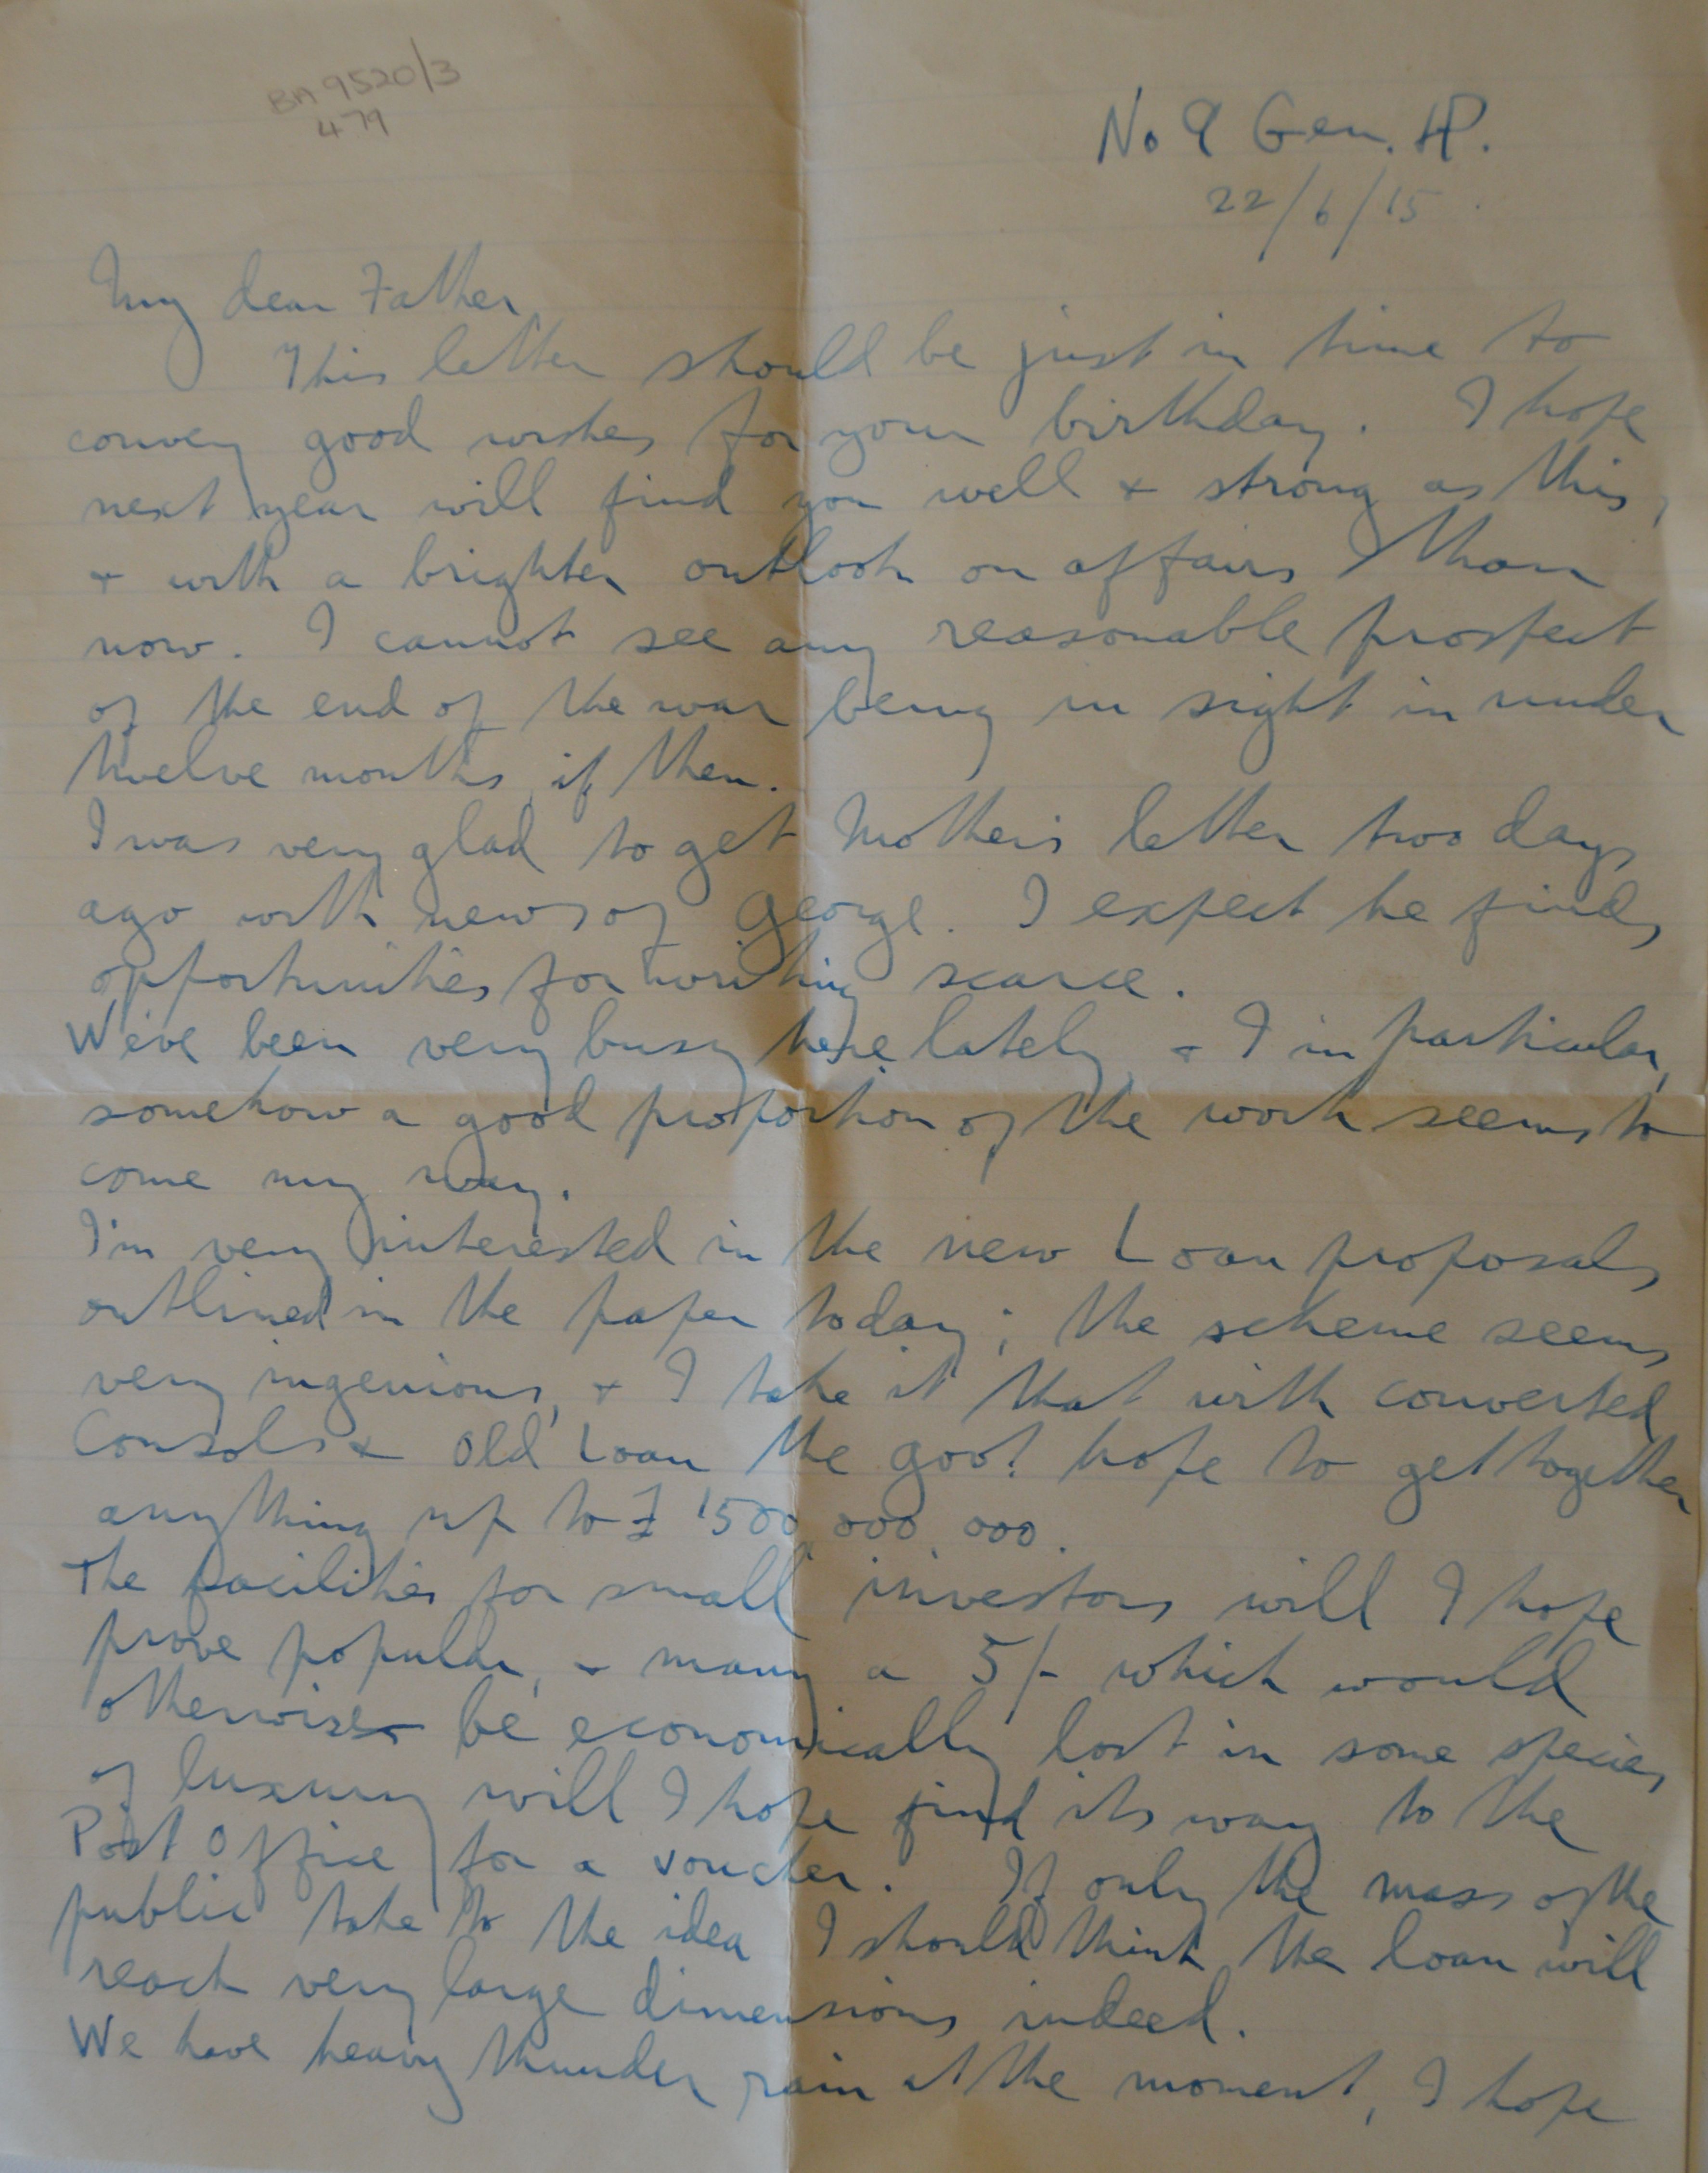 BA 9520/3
479
No 9 Gen. HP.
22/6/15.
My dear Father
This letter should be just in time to
convey good wishes for your birthday. I hope
next year will find you well & strong as this,
& with a brighter outlook on affairs than
now. I cannot see any reasonable prospect
of the end of the war being in sight in under
twelve months, if then.
I was very glad to get Mother's letter two days
ago with news of George. I expect he finds
opportunities for writing scarce.
We've been very busy here lately, & I in particular,
somehow a good proportion of the work seems to
come my way.
I'm very interested in the new Loan proposals
outlined in the paper today; the scheme seems
very ingenious, & I take it that with converted
Consols & old Loan the govt. hope to get together
anything up to £1500,000,000.
The facilities for small investors will I hope
prove popular, & many a 5/- which would
otherwise be economically lost in some species
of luxury will I hope find its way to the
Post Office for a voucher. If only the mass of the
public take to the idea I should think the loan will
reach very large dimensions indeed.
We have heavy thunder rain at the moment, I hope